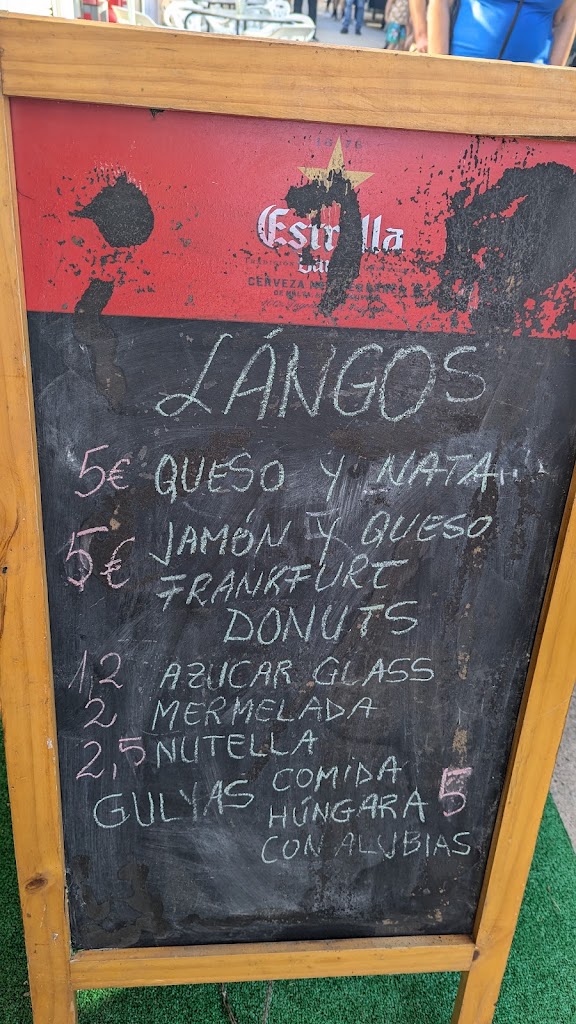 1876
Estrella
CERVEZA
LÁNGOS
5€ QUESO Y NATA
5€ JAMÓN Y QUESO
FRANKFURT
DONUTS
1,2 AZUCAR GLASS
2 MERMELADA
2,5 NUTELLA
GULYAS COMIDA
HÚNGARA 5
CON ALUBIAS